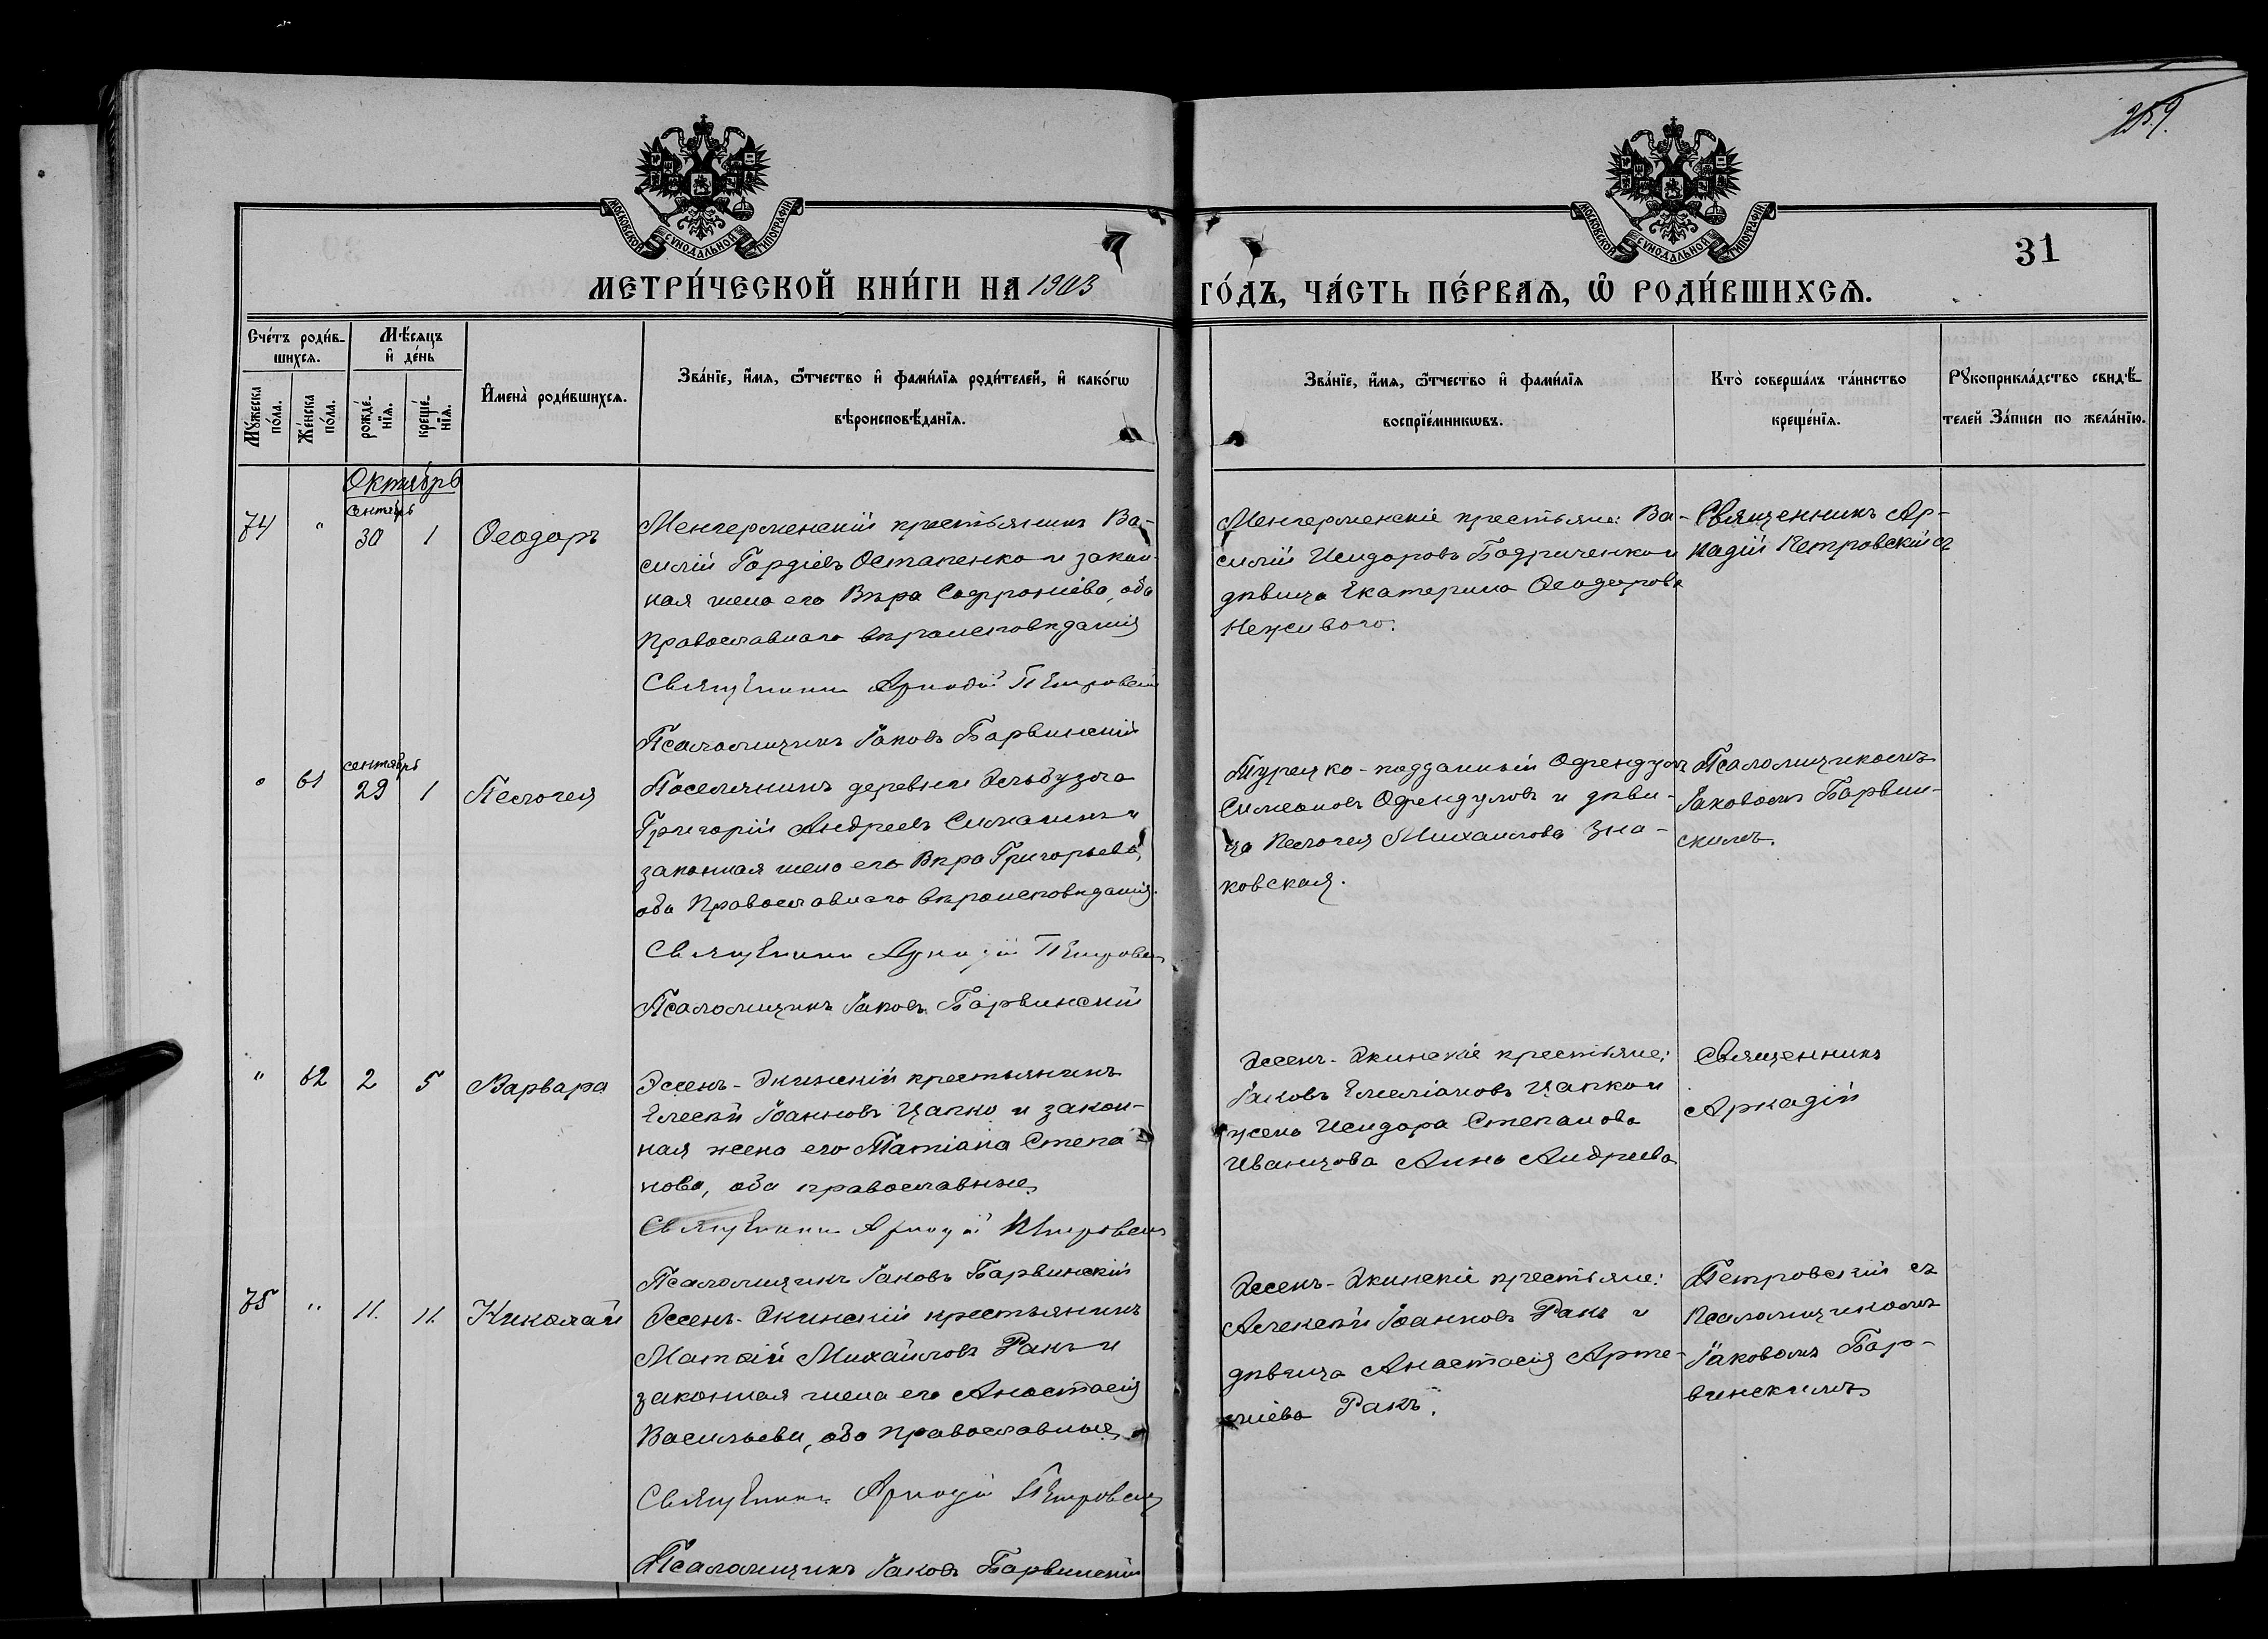 259.
МОСКОВСКОЙ СУНОДАЛЬНОЙ ТИПОГРАФІИ
МОСКОВСКОЙ СУНОДАЛЬНОЙ ТИПОГРАФІИ
31
МЕТРИ́ЧЕСКОЙ КНИ́ГИ НА 1903
ГО́ДЪ, ЧА́СТЬ ПЕ́РВАѦ, Ѡ҆ РОДИ́ВШИХСѦ.
Сче́тъ роди́в-
шихсѧ.
Мꙋ́жеска по́ла.
Же́нска по́ла.
Мѣ́сѧцъ
и҆ де́нь
рожде́-нїѧ.
креще́-нїѧ.
И҆мена̀ роди́вшихсѧ.
Зва́нїе, и҆́мѧ, ѻ҆́тчество и҆ фами́лїѧ роди́телей, и҆ како́гѡ
вѣроисповѣ́данїѧ.
Зва́нїе, и҆́мѧ, ѻ҆́тчество и҆ фами́лїѧ
воспрїе́мникѡвъ.
Кто̀ соверша́лъ та́инство
креще́нїѧ.
Рꙋкоприкла́дство свидѣ́-
телей За́писи по жела́нїю.
Октябрь
Сентябрь
74 " 30 1 Ѳеодоръ
Менгерменскій крестьянинъ Ва-
силій Гордіевъ Остапенко и закон-
ная жена его Вѣра Софроніева, оба
Православнаго вѣроисповѣданія
Священникъ Аркадій Петровскій
Псаломщикъ Іаковъ Барвинскій
Менгерменскіе крестьяне: Ва-
силій Исидоровъ Бодриченко и
дѣвица Екатерина Ѳеодорова
Неживого.
Священникъ Ар-
кадій Петровскій съ
сентябрь
" 61 29 1 Пелагея
Поселянинъ деревни Эльбузга
Григорій Андреевъ Симанинъ и
законная жена его Вѣра Григорьева,
оба Православнаго вѣроисповѣданія.
Священникъ Аркадій Петровскій
Псаломщикъ Іаковъ Барвинскій
Турецко-подданный Офендулъ
Симеоновъ Офендуловъ и дѣви-
ца Пелагея Михаилова Зна-
ковская.
Псаломщикомъ
Іаковомъ Барвин-
скимъ.
" 62 2 5 Варвара
Эссенъ-Экинскій крестьянинъ
Елисей Іоанновъ Цапко и закон-
ная жена его Татіана Степа-
нова, оба православные,
Священникъ Аркадій Петровскій
Псаломщикъ Іаковъ Барвинскій
Эссенъ-Экинскіе крестьяне:
Іаковъ Емеліановъ Цапко и
жена Исидора Степанова
Иванцова Анна Андреева
Священникъ
Аркадій
75 " 11. 11. Николай
Эссенъ-Экинскій крестьянинъ
Матѳій Михайловъ Ракъ и
законная жена его Анастасія
Васильева, оба православные,
Священникъ Аркадій Петровскій
Псаломщикъ Іаковъ Барвинскій
Эссенъ-Экинскіе крестьяне:
Алексѣй Іоанновъ Ракъ и
дѣвица Анастасія Арте-
міева Ракъ.
Петровскій съ
Псаломщикомъ
Іаковомъ Бар-
винскимъ